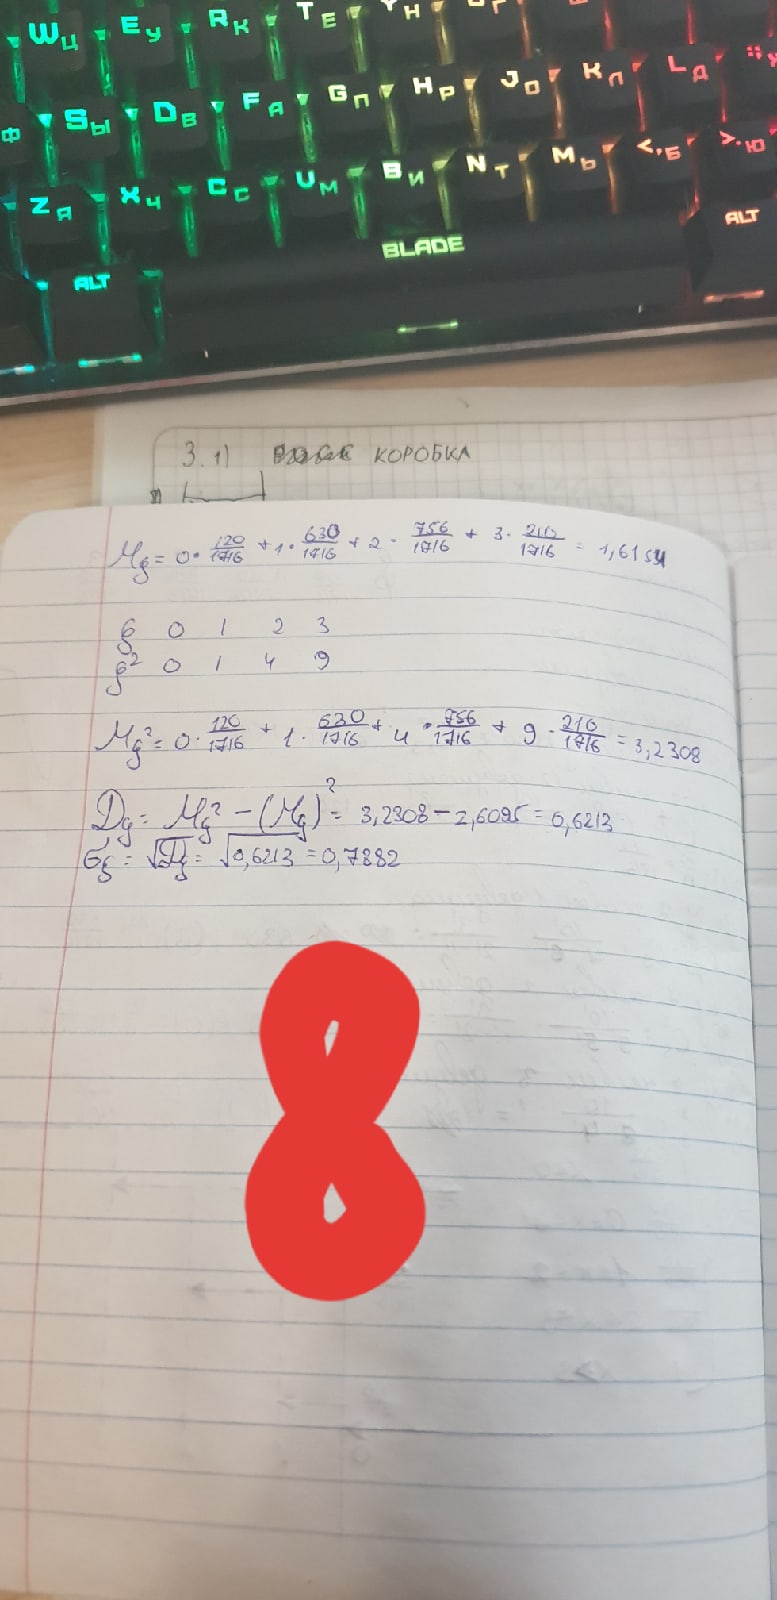 W Ц E У R К T Е Y Н
Ф S Ы D В F А G П H Р J О K Л L Д
Z Я X Ч C С U М B И N Т M Ь <, Б >. Ю
ALT BLADE ALT
3.1) КОРОБКА
Mξ = 0 · 120/1716 + 1 · 630/1716 + 2 · 756/1716 + 3 · 210/1716 = 1,6154
ξ 0 1 2 3
ξ² 0 1 4 9
Mξ² = 0 · 120/1716 + 1 · 630/1716 + 4 · 756/1716 + 9 · 210/1716 = 3,2308
Dξ = Mξ² - (Mξ)² = 3,2308 - 2,6095 = 0,6213
σξ = √Dξ = √0,6213 = 0,7882
8